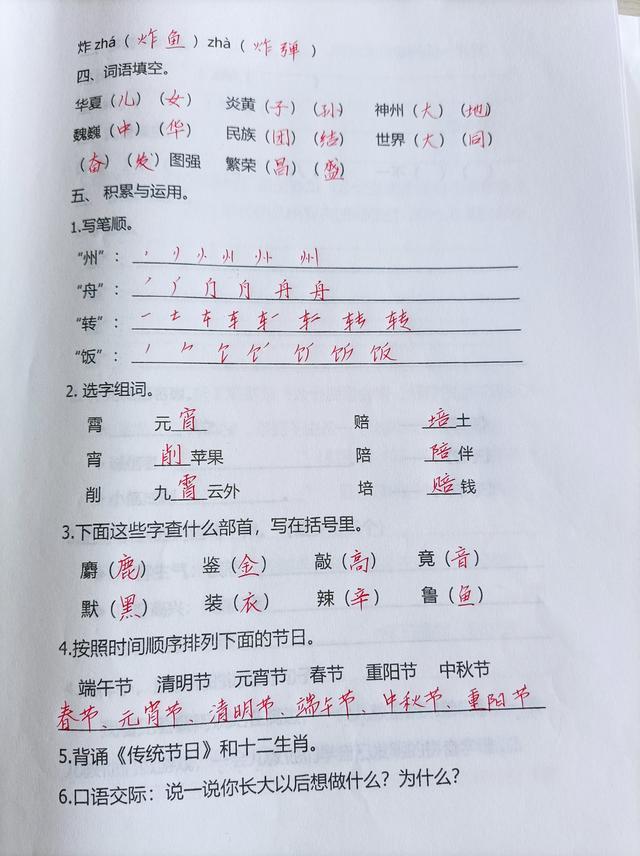 炸 zhá（炸鱼）zhà（炸弹）
四、词语填空。
华夏（儿）（女） 炎黄（子）（孙） 神州（大）（地）
巍巍（中）（华） 民族（团）（结） 世界（大）（同）
（奋）（发）图强 繁荣（昌）（盛）
五、积累与运用。
1.写笔顺。
“州”：
“舟”：
“转”：
“饭”：
2. 选字组词。
霄 元宵 赔 培土
宵 削苹果 陪 陪伴
削 九霄云外 培 赔钱
3.下面这些字查什么部首，写在括号里。
麝（鹿） 鉴（金） 敲（高） 竟（音）
默（黑） 装（衣） 辣（辛） 鲁（鱼）
4.按照时间顺序排列下面的节日。
端午节 清明节 元宵节 春节 重阳节 中秋节
春节、元宵节、清明节、端午节、中秋节、重阳节
5.背诵《传统节日》和十二生肖。
6.口语交际：说一说你长大以后想做什么？为什么？